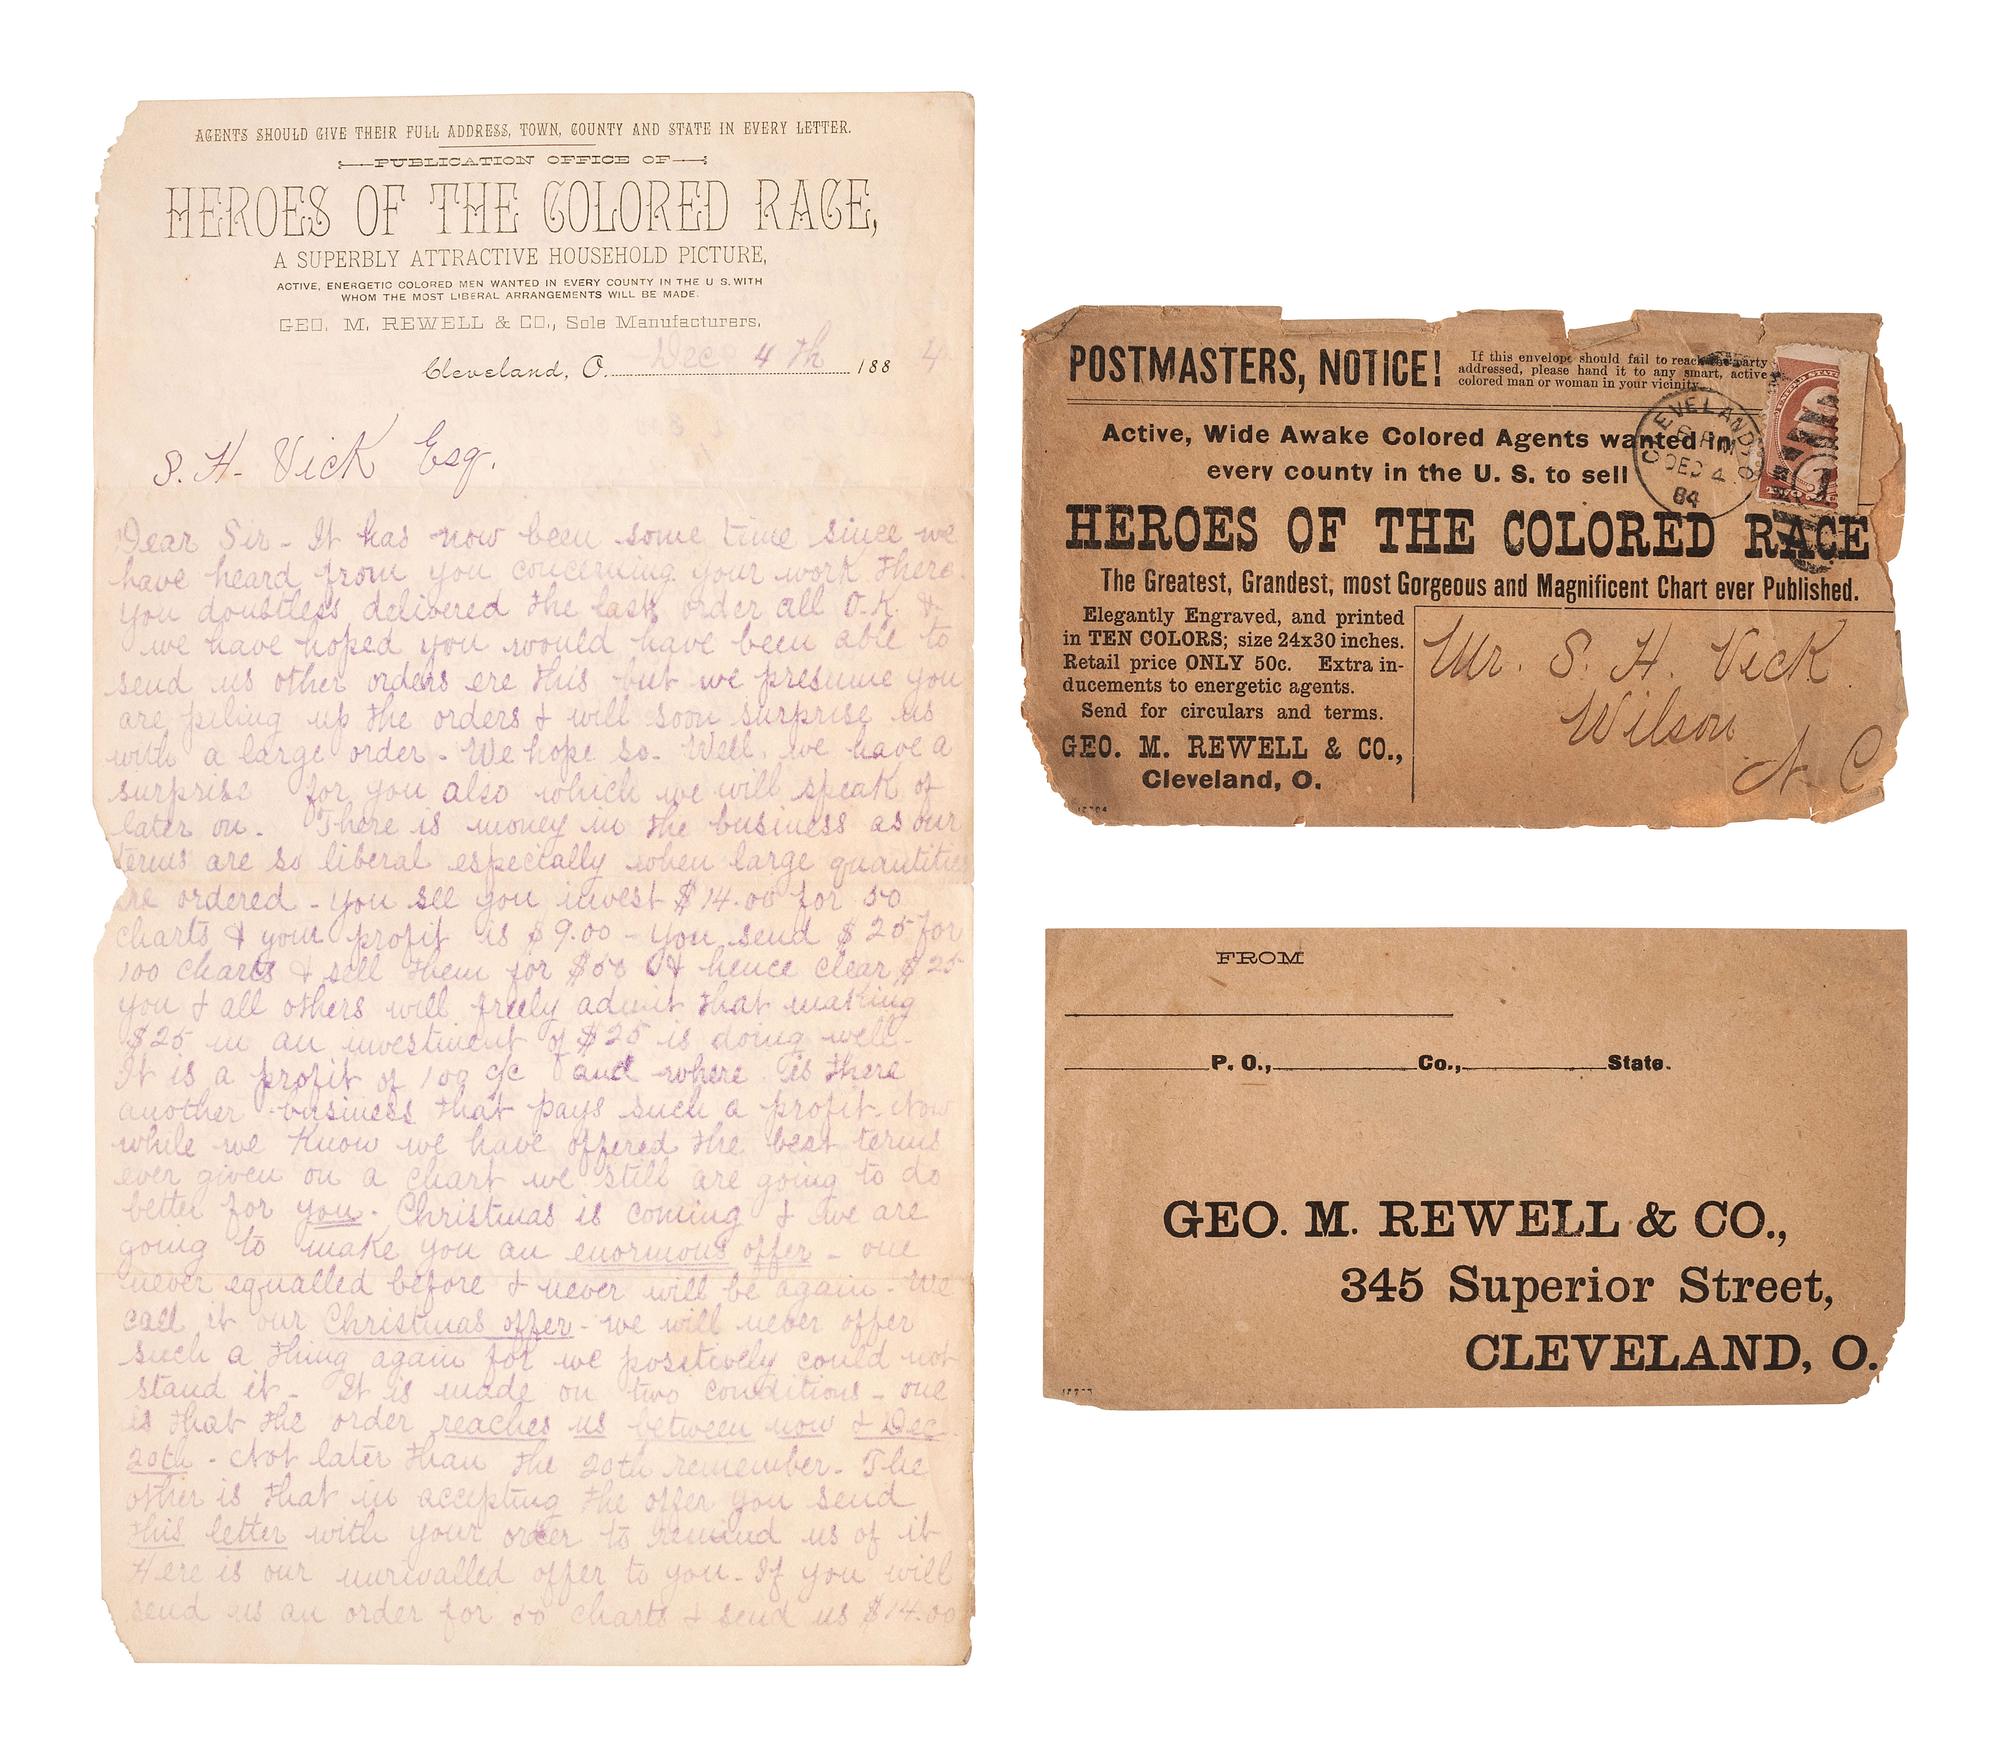 AGENTS SHOULD GIVE THEIR FULL ADDRESS, TOWN, COUNTY AND STATE IN EVERY LETTER.
PUBLICATION OFFICE OF
HEROES OF THE COLORED RACE,
A SUPERBLY ATTRACTIVE HOUSEHOLD PICTURE,
ACTIVE, ENERGETIC COLORED MEN WANTED IN EVERY COUNTY IN THE U S. WITH
WHOM THE MOST LIBERAL ARRANGEMENTS WILL BE MADE.
GEO. M. REWELL & CO., Sole Manufacturers,
Cleveland, O. Dec 4th 1884
S. H. Vick Esq.
Dear Sir - It has now been some time since we
have heard from you concerning your work there.
You doubtless delivered the last order all O.K. &
we have hoped you would have been able to
send us other orders ere this but we presume you
are piling up the orders & will soon surprise us
with a large order - We hope so - Well, we have a
surprise for you also which we will speak of
later on. There is money in the business as our
terms are so liberal especially when large quantities
are ordered - you see you invest $14.00 for 50
charts & your profit is $9.00 - you send $25 for
100 charts & sell them for $50 & hence clear $25
you & all others will freely admit that making
$25 in an investment of $25 is doing well -
It is a profit of 100 % and where is there
another business that pays such a profit. Now
while we know we have offered the best terms
ever given on a chart we still are going to do
better for you. Christmas is coming & we are
going to make you an enormous offer - one
never equalled before & never will be again - We
call it our Christmas offer - we will never offer
such a thing again for we positively could not
stand it - It is made on two conditions - one
is that the order reaches us between now & Dec
20th - Not later than the 20th remember - The
other is that in accepting the offer you send
this letter with your order to remind us of it
Here is our unrivalled offer to you - If you will
send us an order for 50 charts & send us $14.00
POSTMASTERS, NOTICE!
If this envelope should fail to reach the party
addressed, please hand it to any smart, active
colored man or woman in your vicinity.
Active, Wide Awake Colored Agents wanted in
every county in the U. S. to sell
CLEVELAND O
6 PM
DEC 4
84
HEROES OF THE COLORED RACE
The Greatest, Grandest, most Gorgeous and Magnificent Chart ever Published.
Elegantly Engraved, and printed
in TEN COLORS; size 24x30 inches.
Retail price ONLY 50c. Extra in-
ducements to energetic agents.
Send for circulars and terms.
GEO. M. REWELL & CO.,
Cleveland, O.
Mr. S. H. Vick
Wilson
N C
FROM
P. O., Co., State.
GEO. M. REWELL & CO.,
345 Superior Street,
CLEVELAND, O.